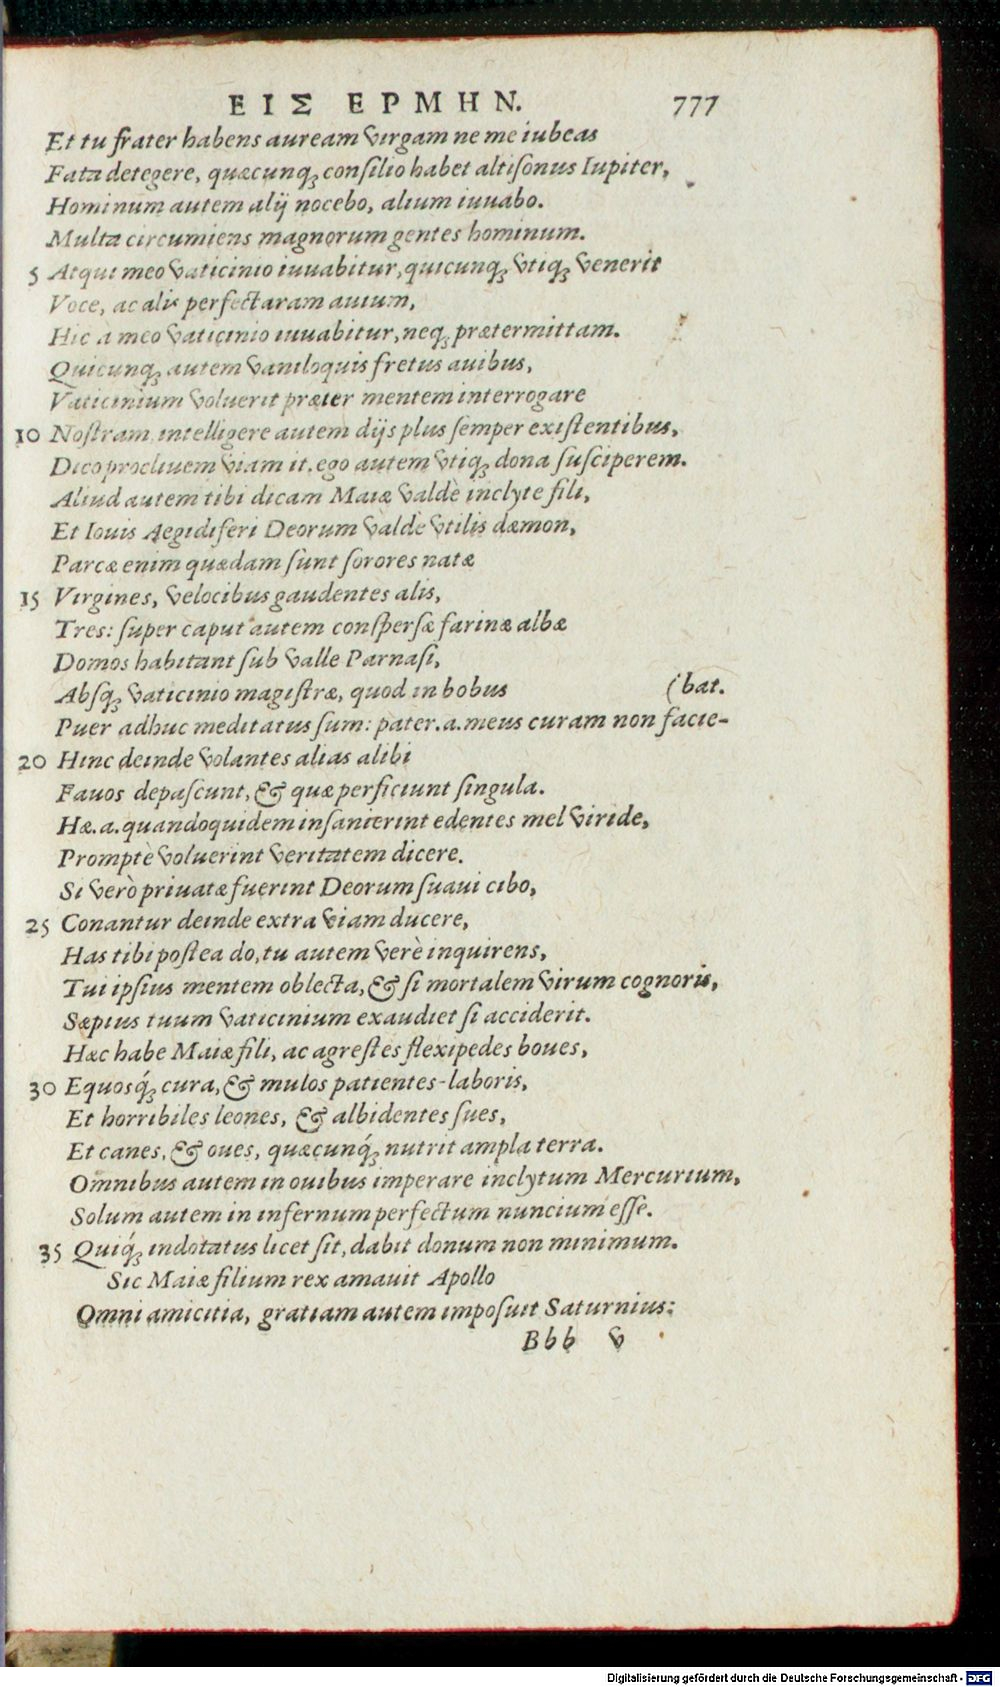 ΕΙΣ ΕΡΜΗΝ. 777
Et tu frater habens auream virgam ne me iubeas
Fata detegere, quæcunq; consilio habet altisonus Iupiter,
Hominum autem alij nocebo, alium iuuabo.
Multa circumiens magnorum gentes hominum.
5 Atqui meo vaticinio iuuabitur, quicunq; vtiq; venerit
Voce, ac alis perfectaram auium,
Hic a meo vaticinio iuuabitur, neq; prætermittam.
Quicunq; autem vaniloquis fretus auibus,
Vaticinium voluerit præter mentem interrogare
10 Nostram, intelligere autem dijs plus semper existentibus,
Dico procliuem viam it, ego autem vtiq; dona susciperem.
Aliud autem tibi dicam Maiæ valdè inclyte fili,
Et Iouis Aegidiferi Deorum valdè vtilis dæmon,
Parcæ enim quædam sunt sorores natæ
15 Virgines, velocibus gaudentes alis,
Tres: super caput autem conspersæ farinæ albæ
Domos habitant sub valle Parnasi,
Absq; vaticinio magistræ, quod in bobus (bat.
Puer adhuc meditatus sum: pater.a.meus curam non facie-
20 Hinc deinde volantes alias alibi
Fauos depascunt, & quæ perficiunt singula.
Hæ.a.quandoquidem insanierint edentes mel viride,
Promptè voluerint veritatem dicere.
Si verò priuatæ fuerint Deorum suaui cibo,
25 Conantur deinde extra viam ducere,
Has tibi postea do, tu autem verè inquirens,
Tui ipsius mentem oblecta, & si mortalem virum cognoris,
Sæpius tuum vaticinium exaudiet si acciderit.
Hæc habe Maiæ fili, ac agrestes flexipedes boues,
30 Equosq́; cura, & mulos patientes-laboris,
Et horribiles leones, & albidentes sues,
Et canes, & oues, quæcunq́; nutrit ampla terra.
Omnibus autem in ouibus imperare inclytum Mercurium,
Solum autem in infernum perfectum nuncium esse.
35 Quiq́; indotatus licet sit, dabit donum non minimum.
Sic Maiæ filium rex amauit Apollo
Omni amicitia, gratiam autem imposuit Saturnius:
Bbb v
Digitalisierung gefördert durch die Deutsche Forschungsgemeinschaft - DFG